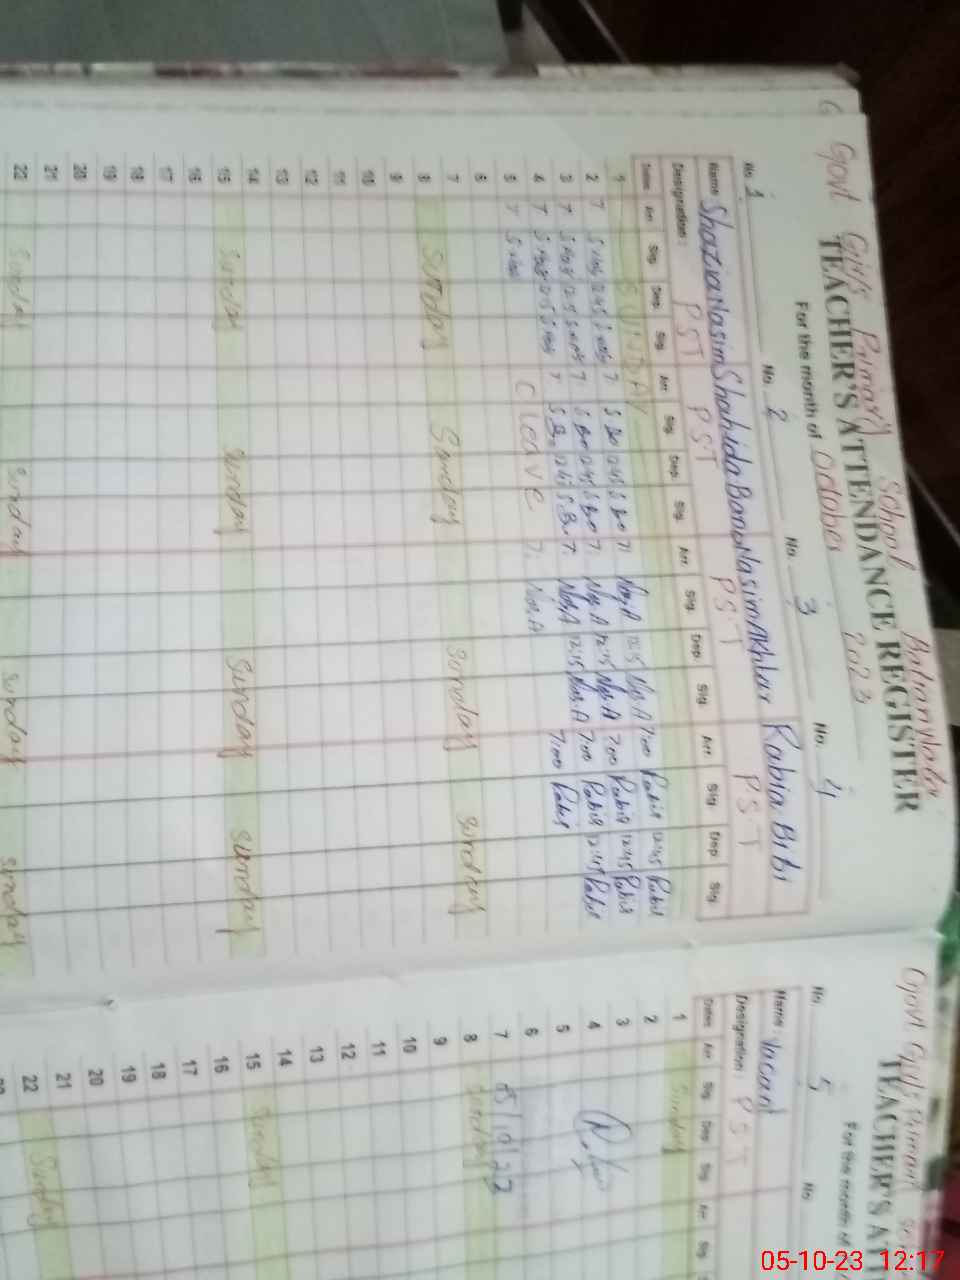 Govt Girls Primary School
TEACHER'S ATTENDANCE REGISTER
For the month of October 2023
No. 1 No. 2 No. 3 No. 4
Name Shazia Nasim Shahida Bano Nasim Akhtar Rabia Bibi
Designation: PST PST PST PST
Dates Arr. Sig. Dep. Sig. Arr. Sig. Dep. Sig. Arr. Sig. Dep. Sig. Arr. Sig. Dep. Sig.
1 SUNDAY
2 7 12:45 7 12:45 7 Naz.A 12:45 Naz.A 7:00 Rabia 12:45 Rabia
3 7 12:45 7 12:45 7 Naz.A 12:45 Naz.A 7:00 Rabia 12:45 Rabia
4 7 12:45 7 12:45 7 Naz.A 12:45 Naz.A 7:00 Rabia 12:45 Rabia
5 7 C Leave 7 Naz.A 7:00 Rabia
6
7
8 Sunday Sunday Sunday Sunday
9
10
11
12
13
14
15 Sunday Sunday Sunday Sunday
16
17
18
19
20
21
22 Sunday Sunday Sunday Sunday
Govt Girls Primary
TEACHER'S ATT
For the month of
No. 5 No.
Name: Vacant
Designation PST
Dates Arr. Sig. Dep. Sig. Arr. Sig.
1 Sunday
2
3
4
5
6
7
8 Sunday
9
10
11
12
13
14
15 Sunday
16
17
18
19
20
21
22 Sunday
05-10-23 12:17